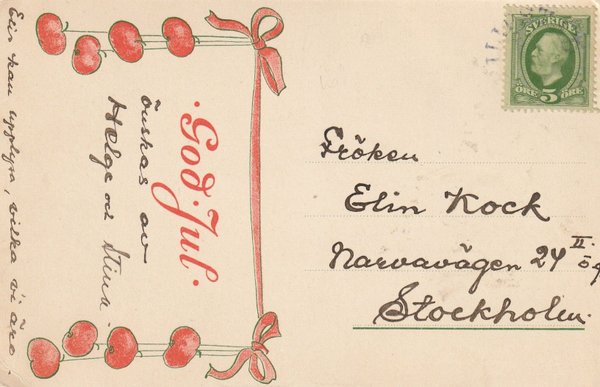 ·God Jul·
önskas av
Helge och Stina.
Elin kan upplysa, vilka vi äro.
SVERIGE
5
ÖRE ÖRE
Fröken
Elin Kock
Narvavägen 24 II ög
Stockholm.